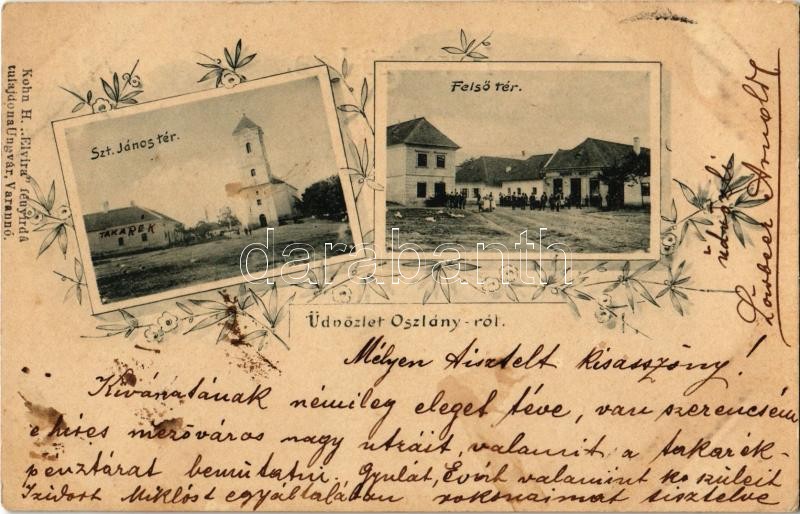 Kohn H. „Elvira" fényirdá
tulajdona Ungvár, Varannó.
Szt. János tér.
TAKARÉK
Felső tér.
darabanth
Üdvözlet Oszlány-ról.
üdvözli
Arnold
Mélyen tisztelt kisasszony!
Kivánatának némileg eleget téve, van szerencsém
e híres mezőváros nagy utzáit, valamit a takarék-
pénztárat bemutatni. Gyulát, Évit valamint k. szüleit
Izidort Miklóst egyáltalában rokonaimat tisztelve